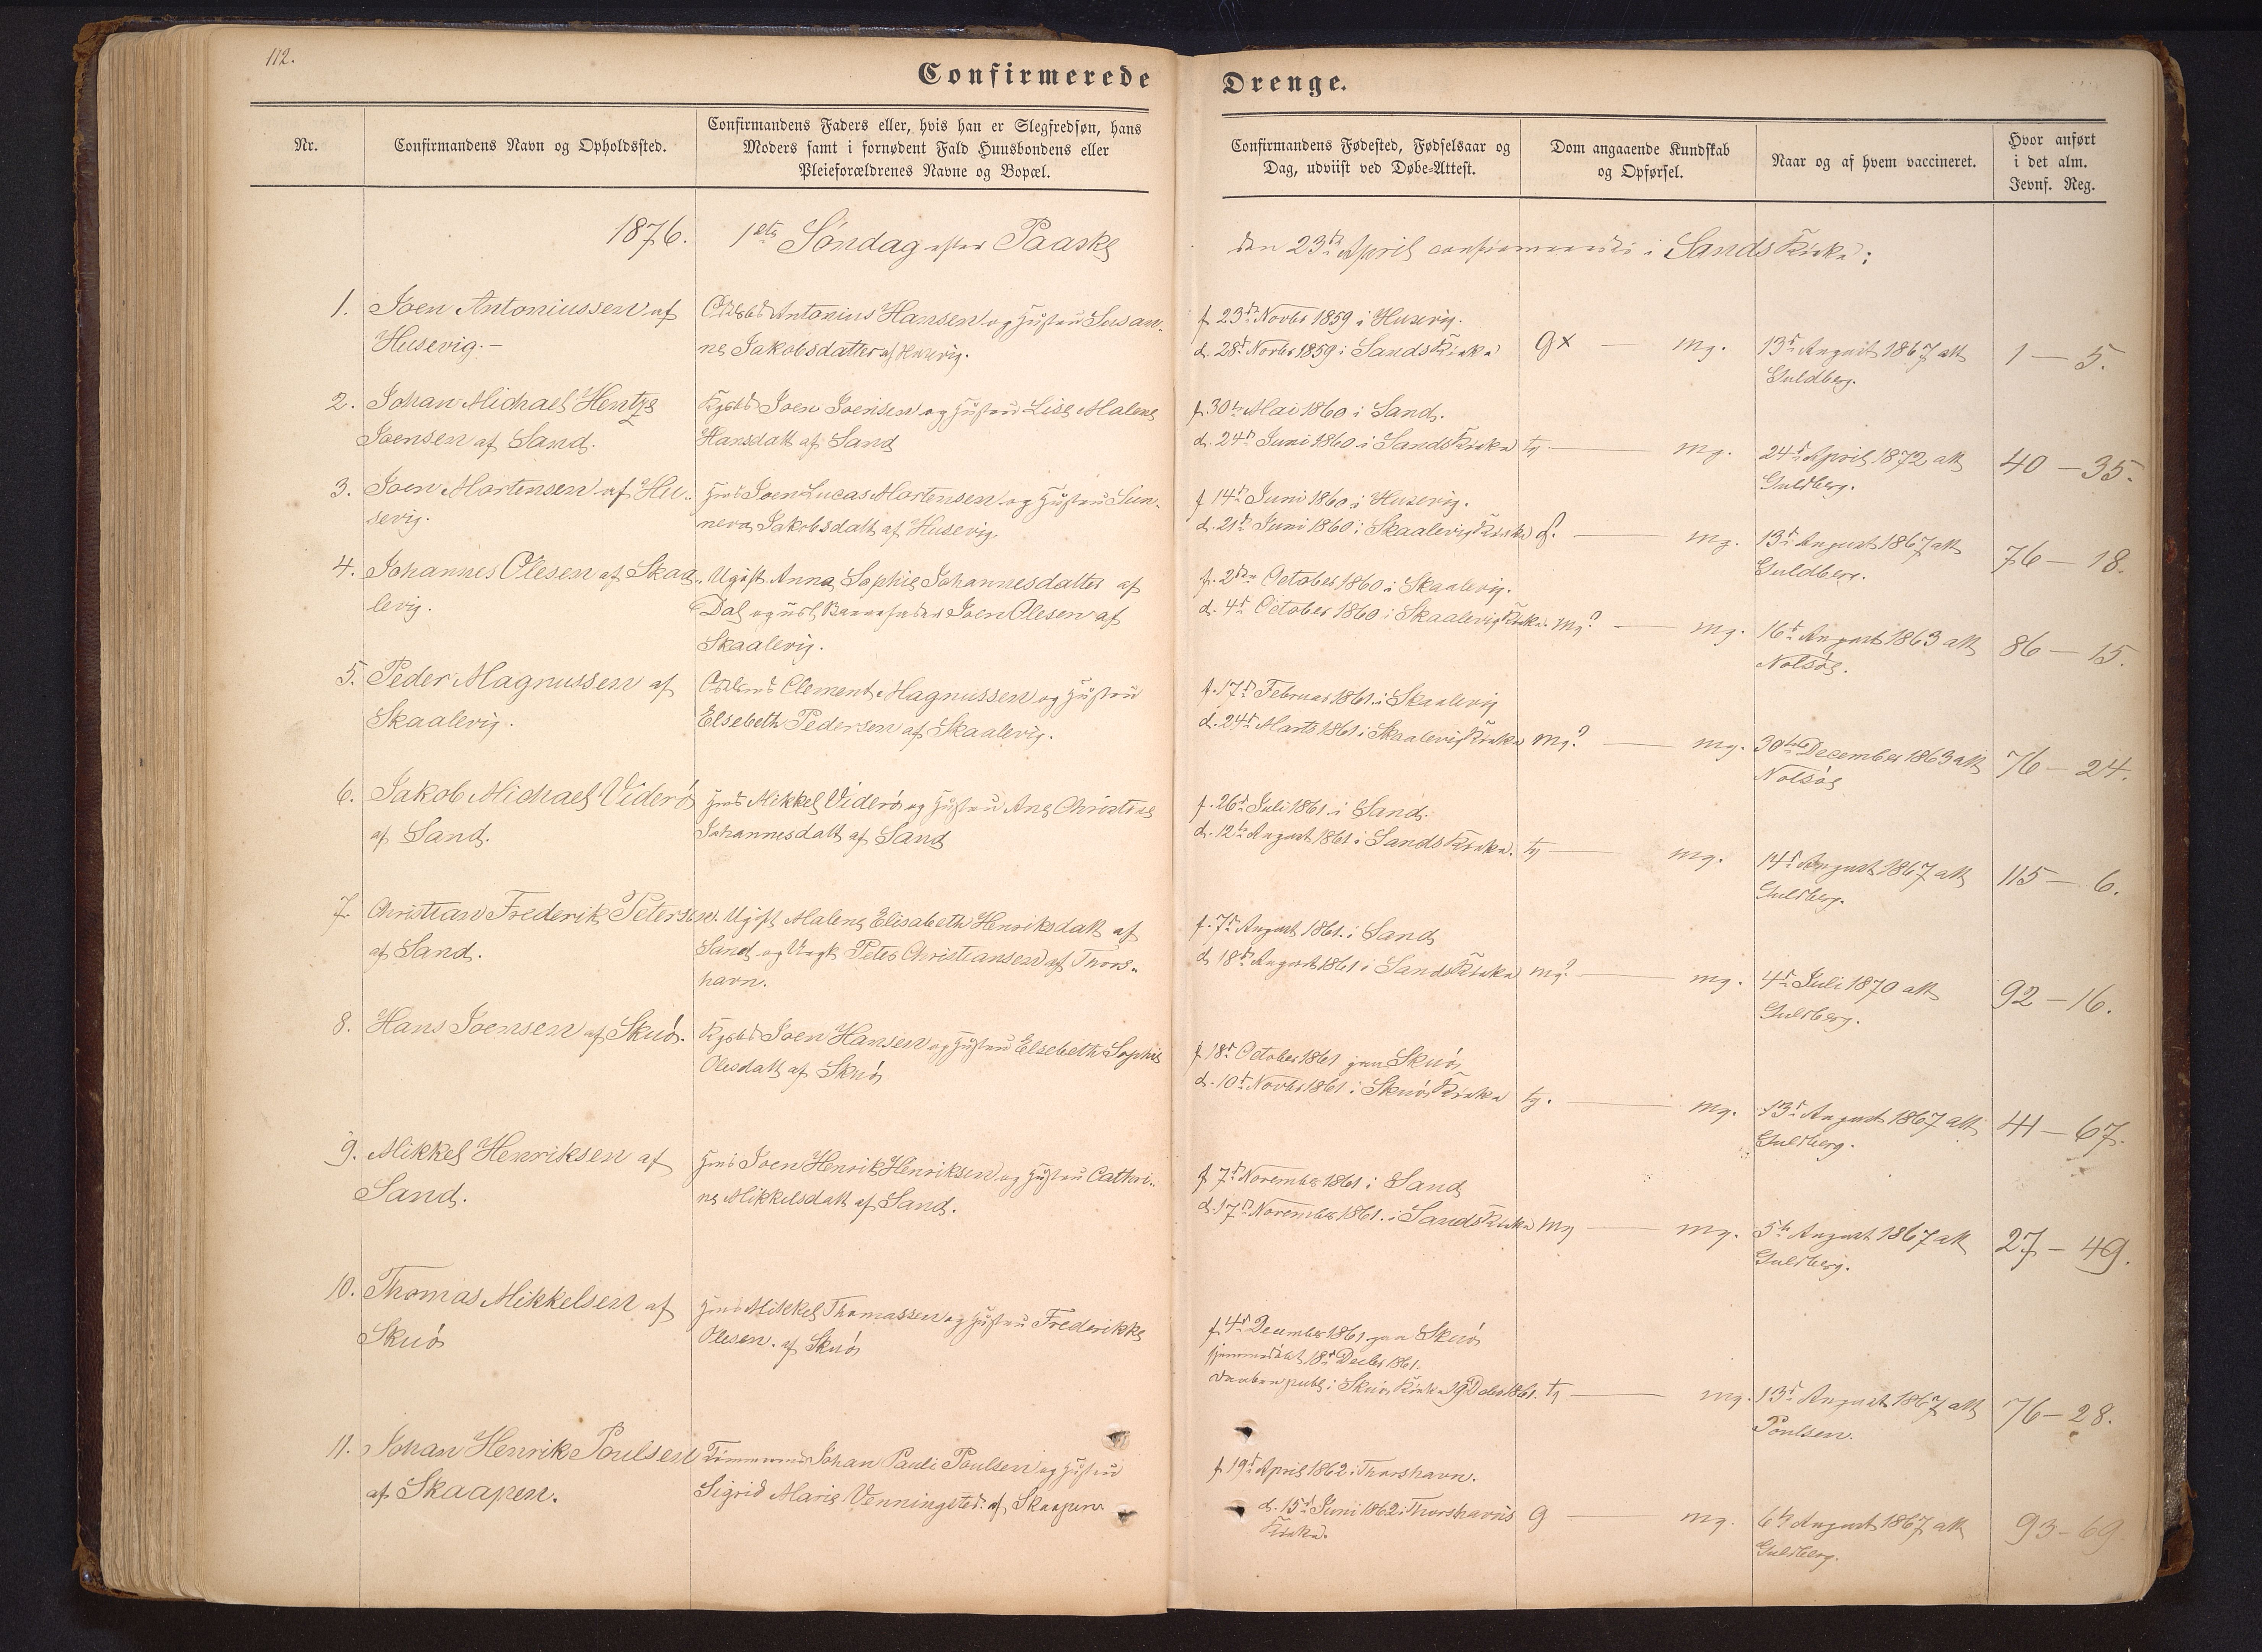 112.
Confirmerede Drenge.
Nr.
Confirmandens Navn og Opholdssted.
Confirmandens Faders eller, hvis han er Slegfredsøn, hans
Moders samt i fornødent Fald Huusbondens eller
Pleieforældrenes Navne og Bopæl.
Confirmandens Fødested, Fødselsaar og
Dag, udviist ved Døbe-Attest.
Dom angaaende Kundskab
og Opførsel.
Naar og af hvem vaccineret.
Hvor anført
i det alm.
Jevnf. Reg.
1876. 1ste Søndag efter Paaske
den 23de April confirmeredes i Sands Kirke:
1. Joen Antoniussen af
Husevig.-
Antonius Hansen og Hustru Susan-
ne Jakobsdatter af Husevig.
f 23de Novbr 1859 i Husevig.
d. 28de Novbr 1859 i Sands Kirke
gx — mg.
13de August 1867 att
Guldberg.
1 — 5.
2. Johan Michael Hentze
Joensen af Sand.
Joen Joensen og Hustru Lise Malene
Hansdatt af Sand
f. 30te Mai 1860 i Sand.
d. 24de Juni 1860 i Sands Kirke
tg — mg.
24de April 1872 att
Guldberg.
40 — 35.
3. Joen Mortensen af Hu-
sevig.
Joen Lucas Mortensen og Hustru Sun-
neva Jakobsdatt af Husevig.
f 14de Juni 1860 i Husevig.
d. 21de Juni 1860 i Skaalevig Kirke
g? — mg.
13de August 1867 att
Guldberg.
76 — 18.
4. Johannes Olesen af Skaa-
levig.
Ugift Anna Sophie Johannesdatter af
Dal og udl. Barnefader Joen Olesen af
Skaalevig.
f. 2den October 1860 i Skaalevig.
d. 4de October 1860 i Skaalevig Kirke.
mg? — mg.
16de August 1863 att
Nolsøe.
86 — 15.
5. Peder Magnussen af
Skaalevig.
Clement Magnussen og Hustru
Elsebeth Pedersen af Skaalevig.
f. 17de Februar 1861 i Skaalevig
d. 24de Marts 1861 i Skaalevig Kirke
mg? — mg.
30te December 1863 att
Nolsøe
76 — 24.
6. Jakob Michael Viderø
af Sand.
Mikkel Viderø og Hustru Ane Christine
Johannesdatt af Sand
f. 26de Juli 1861 i Sand.
d. 12te August 1861 i Sands Kirke.
tg — mg.
14de August 1867 att
Guldberg.
115 — 6.
7. Christian Frederik Petersen.
af Sand.
Ugift Malene Elisabeth Henriksdatt af
Sand og Ungk Peter Christiansen af Thors-
havn.
f. 7de August 1861 i Sand
d 18de August 1861 i Sands Kirke
mg? — mg.
4de Juli 1870 att
Guldberg.
92 — 16.
8. Hans Joensen af Skuø.
Joen Hansen og Hustru Elsebeth Sophie
Olesdatt af Skuø
f. 18de October 1861 paa Skuø,
d. 10de Novbr 1861 i Skuø Kirke
tg. — mg.
13de August 1867 att
Guldberg.
41 — 67.
9. Mikkel Henriksen af
Sand.
Joen Henrik Henriksen og Hustru Cathri-
ne Mikkelsdatt af Sand.
f 7de November 1861 i Sand
d. 17de November 1861 i Sands Kirke
mg — mg.
5te August 1867 att
Guldberg.
27 — 49.
10. Thomas Mikkelsen af
Skuø
Mikkel Thomassen og Hustru Frederikke
Olesen. af Skuø
f 4de December 1861 paa Skuø
hjemmedøbt 18de Decbr 1861.
Daaben publ i Skuø Kirke 19de Decbr 1861.
tg — mg.
13de August 1867 att
Poulsen.
76 — 28.
11. Johan Henrik Poulsen
af Skaapen.
Tømmermd Johan Pauli Poulsen og Hustru
Sigrid Marie Venningsted. af Skaapen
f 19de April 1862 i Thorshavn.
d. 15de Juni 1862 i Thorshavns
Kirke.
g — mg.
6te August 1867 att
Guldberg.
93 - 69